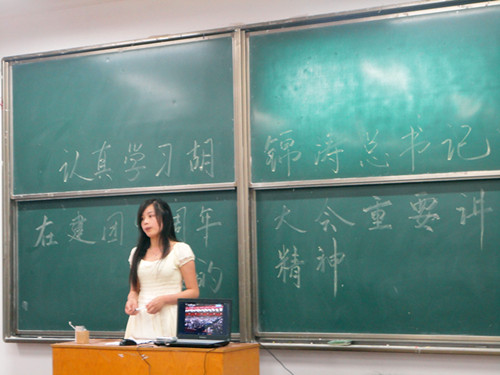 认真学习胡锦涛总书记
在建团 周年 大会重要讲
的 精神